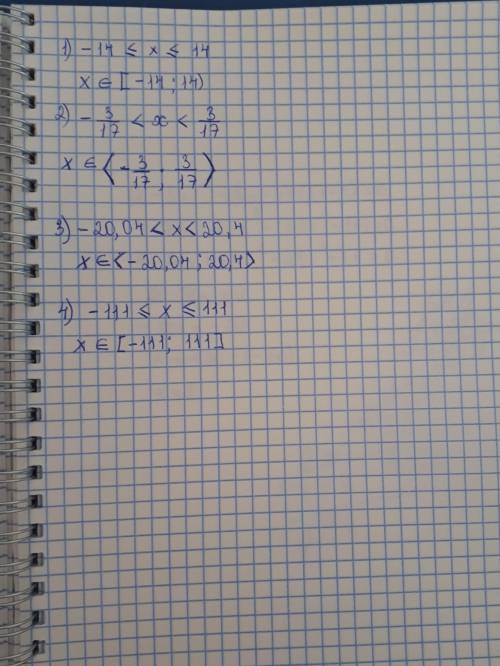 1) -14 ⩽ x ⩽ 14
x ∈ [-14; 14)
2) -3/17 < x < 3/17
x ∈ ⟨-3/17; 3/17⟩
3) -20,04 < x < 20,4
x ∈ <-20,04; 20,4>
4) -111 ⩽ x ⩽ 111
x ∈ [-111; 111]